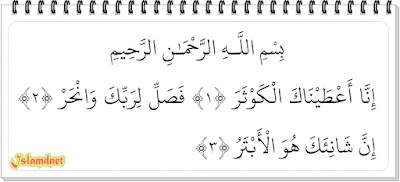 بِسْمِ اللَّـهِ الرَّحْمَـٰنِ الرَّحِيمِ
إِنَّا أَعْطَيْنَاكَ الْكَوْثَرَ ﴿١﴾ فَصَلِّ لِرَبِّكَ وَانْحَرْ ﴿٢﴾
إِنَّ شَانِئَكَ هُوَ الْأَبْتَرُ ﴿٣﴾
Islamdnet